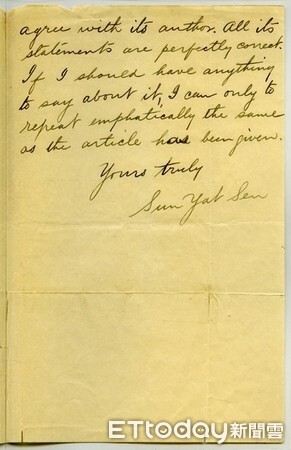 agree with its author. All its
statements are perfectly correct.
If I should have anything
to say about it, I can only to
repeat emphatically the same
as the article has been given.
Yours truly
Sun Yat Sen
ETtoday新聞雲